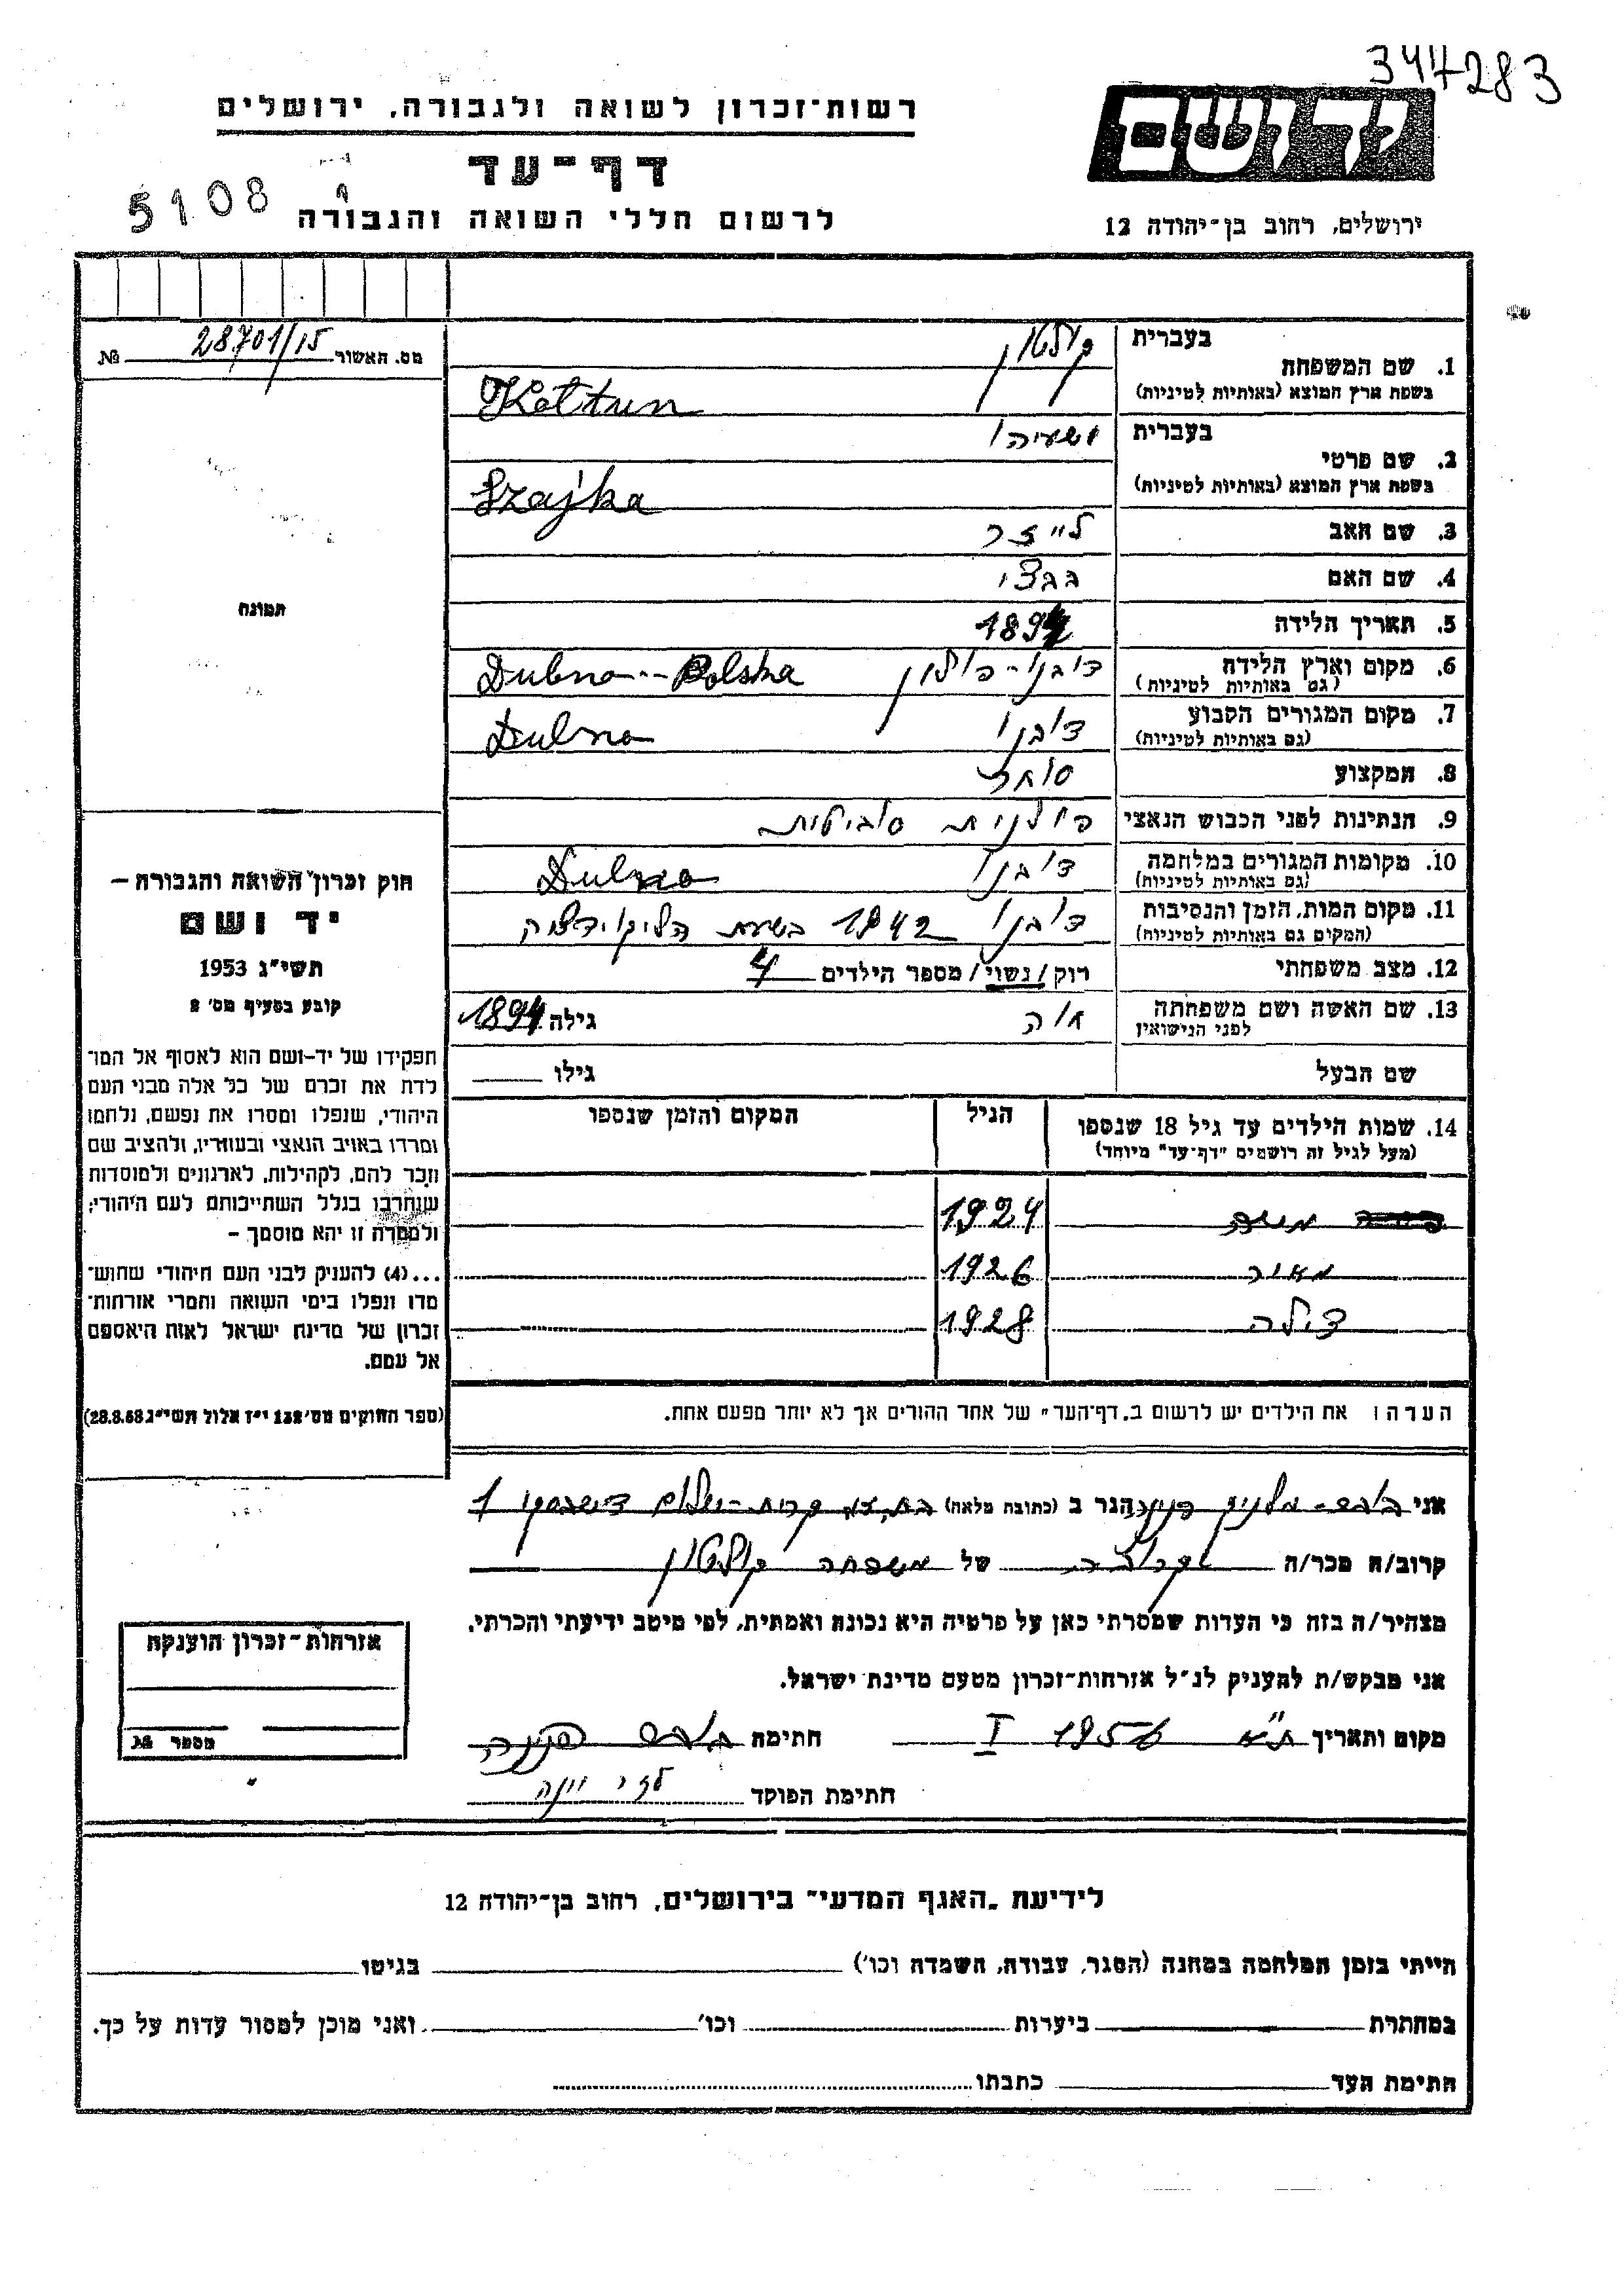 344283
רשות-זכרון לשואה ולגבורה, ירושלים
יד ושם
דף-עד
5108
לרשום חללי השואה והגבורה
ירושלים, רחוב בן-יהודה 12
מס. האשור 28701/15 №
תמונה
חוק זכרון השואה והגבורה –
יד ושם
תשי"ג 1953
קובע בסעיף מס' 2
תפקידו של יד-ושם הוא לאסוף אל המו־
לדת את זכרם של כל אלה מבני העם
היהודי, שנפלו ומסרו את נפשם, נלחמו
ומרדו באויב הנאצי ובעוזריו, ולהציב שם
וזכר להם, לקהילות, לארגונים ולמוסדות
שנחרבו בגלל השתייכותם לעם היהודי;
ולמטרה זו יהא מוסמך –
...(4) להעניק לבני העם היהודי שהוש־
מדו ונפלו בימי השואה והמרי אזרחות־
זכרון של מדינת ישראל לאות היאספם
אל עמם.
(ספר החוקים מס' 132 י"ז אלול תשי"ג 28.8.53)
1. שם המשפחה
בעברית קולטון
בשפת ארץ המוצא (באותיות לטיניות) Kołtun
2. שם פרטי
בעברית ישעיהו
בשפת ארץ המוצא (באותיות לטיניות) Szajka
3. שם האב לייזר
4. שם האם
5. תאריך הלידה 1894
6. מקום וארץ הלידה דובנו - פולין Dubno -- Polska
(גם באותיות לטיניות)
7. מקום המגורים הקבוע דובנו Dubno
(גם באותיות לטיניות)
8. המקצוע סוחר
9. הנתינות לפני הכבוש הנאצי פולנית סוביטית
10. מקומות המגורים במלחמה דובנו Dubno
(גם באותיות לטיניות)
11. מקום המות, הזמן והנסיבות דובנו 1942 בשעת הליקוידציה
(המקום גם באותיות לטיניות)
12. מצב משפחתי רוק / נשוי / מספר הילדים 4
13. שם האשה ושם משפחתה חוה גילה 1894
לפני הנישואין
שם הבעל גילו
14. שמות הילדים עד גיל 18 שנספו הגיל המקום והזמן שנספו
(מעל לגיל זה רושמים "דף-עד" מיוחד)
משה 1924
מאיר 1926
דילה 1928
הערה: את הילדים יש לרשום ב"דף-העד" של אחד ההורים אך לא יותר מפעם אחת.
אני פנינה הגר ב (כתובת מלאה) קרית-שלום 1
קרוב/ה מכר/ה קרובה של משפחה קולטון
מצהיר/ה בזה כי העדות שמסרתי כאן על פרטיה היא נכונה ואמתית, לפי מיטב ידיעתי והכרתי.
אני מבקש/ת להעניק לנ"ל אזרחות-זכרון מטעם מדינת ישראל.
מקום ותאריך ת"א 1956 I חתימה פנינה
חתימת הפוקד
אזרחות-זכרון הוענקה
מספר №
לידיעת "האגף המדעי" בירושלים, רחוב בן-יהודה 12
הייתי בזמן המלחמה במחנה (הסגר, עבודה, השמדה וכו') בגיטו
במחתרת ביערות וכו' ואני מוכן למסור עדות על כך.
חתימת העד כתבתו